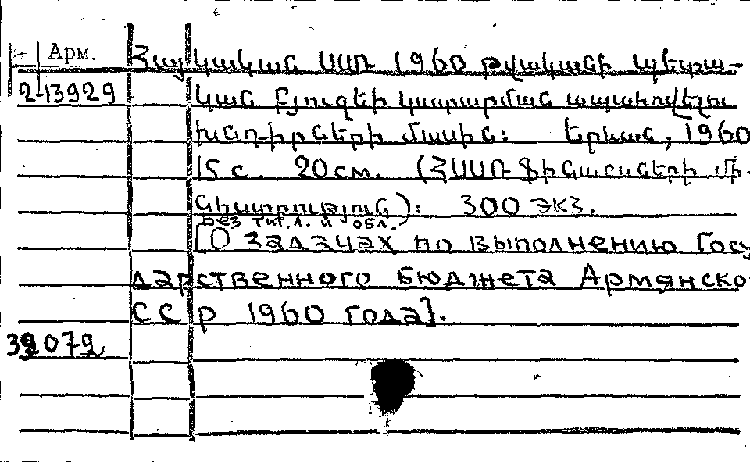 Арм.
Հայկական ՍՍՌ 1960 թվականի պետա-
2-13929
կան բյուջեի կատարման ապահովելու
խնդիրների մասին: Երևան, 1960
15 с. 20 см. (ՀՍՍՌ ֆինանսների մի-
նիստրություն): 300 экз.
Без тит. л. и обл.
[О задачах по выполнению Госу
дарственного бюджета Армянско
ССР 1960 года].
39079